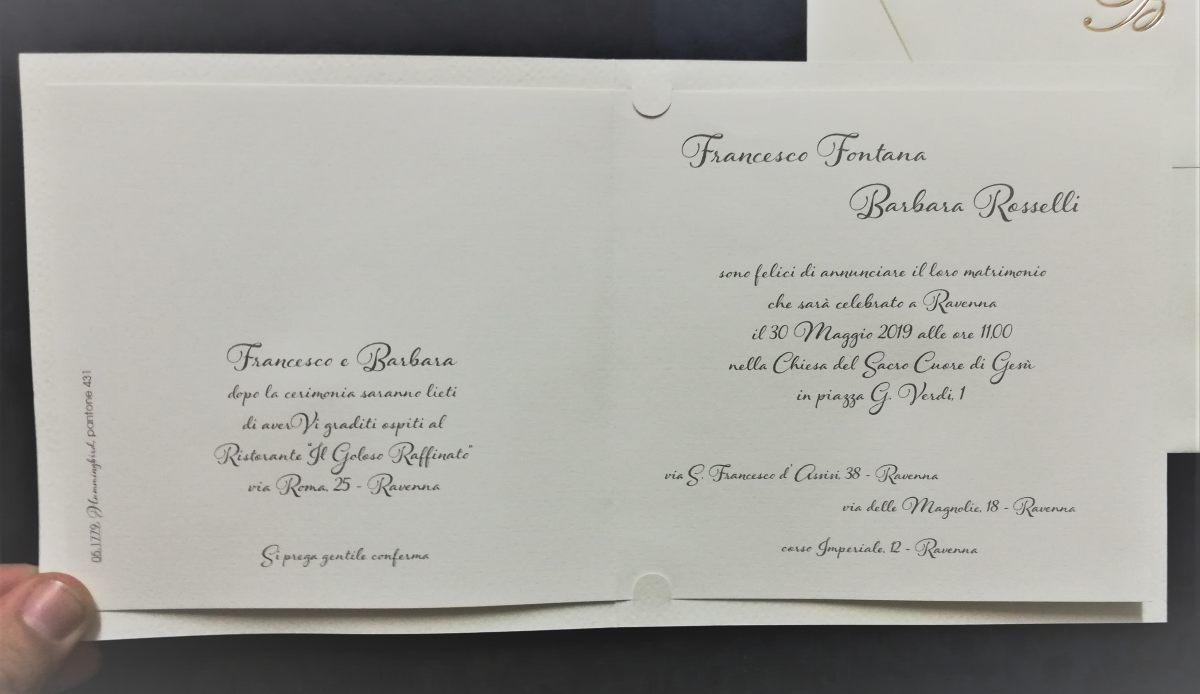 Francesco e Barbara
dopo la cerimonia saranno lieti
di averVi graditi ospiti al
Ristorante "Il Goloso Raffinato"
via Roma, 25 - Ravenna
Si prega gentile conferma
06.1779, Hummingbird, pantone 431
Francesco Fontana
Barbara Rosselli
sono felici di annunciare il loro matrimonio
che sarà celebrato a Ravenna
il 30 Maggio 2019 alle ore 11,00
nella Chiesa del Sacro Cuore di Gesù
in piazza G. Verdi, 1
via S. Francesco d'Assisi, 38 - Ravenna
via delle Magnolie, 18 - Ravenna
corso Imperiale, 12 - Ravenna
B